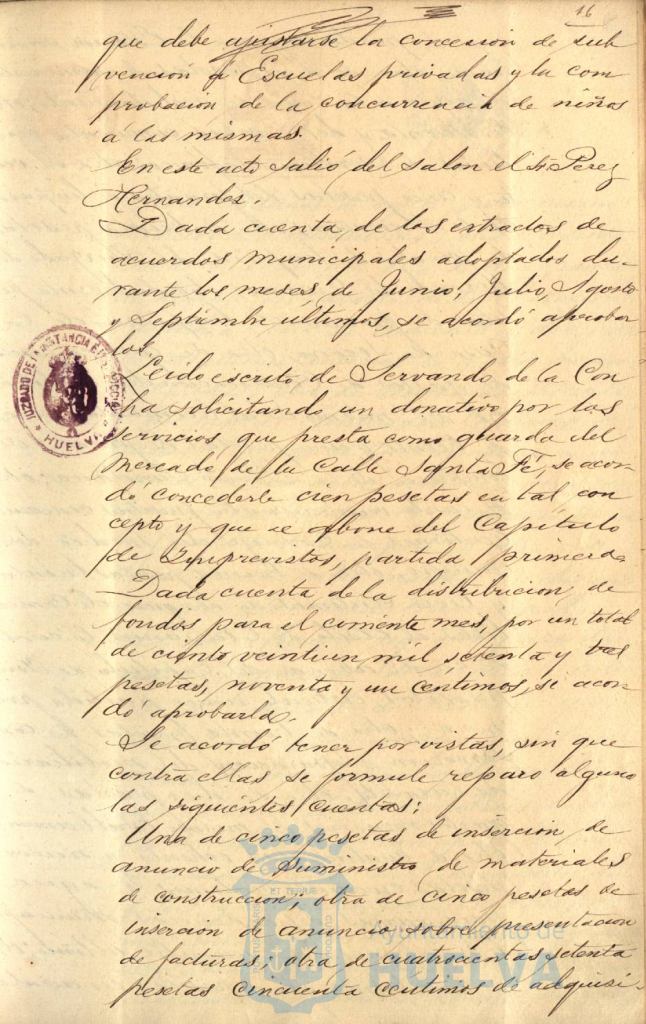 16
que debe ajustarse la concesion de sub
vención á Escuelas privadas y la com
probacion de la concurrencia de niños
á las mismas.
En este acto salió del salon el Sr Perez
Hernandez.
Dada cuenta de los extractos de
acuerdos municipales adoptados du-
rante los meses de Junio, Julio, Agosto
y Septiembre ultimos, se acordó aprobar
los.
Leido escrito de Servando de la Con
cha solicitando un donativo por los
servicios que presta como guarda del
mercado de la Calle Santa Fé, se acor
dó concederle cien pesetas en tal con
cepto y que se abone del Capítulo
de Imprevistos, partida primera.
Dada cuenta de la distribucion de
fondos para el corriente mes, por un total
de ciento veintiun mil, setenta y tres
pesetas, noventa y un centimos, se acor
dó aprobarla.
Se acordó tener por vistas, sin que
contra ellas se formule reparo alguno
las siguientes cuentas:
Una de cinco pesetas de insercion de
anuncio de suministro de materiales
de construccion; otra de cinco pesetas de
insercion de anuncio sobre presentacion
de facturas; otra de cuatrocientas setenta
pesetas cincuenta centimos de adquisi-
JUZGADO DE 1ª INSTANCIA E INSTRUCCION
HUELVA
Ayuntamiento de
HUELVA